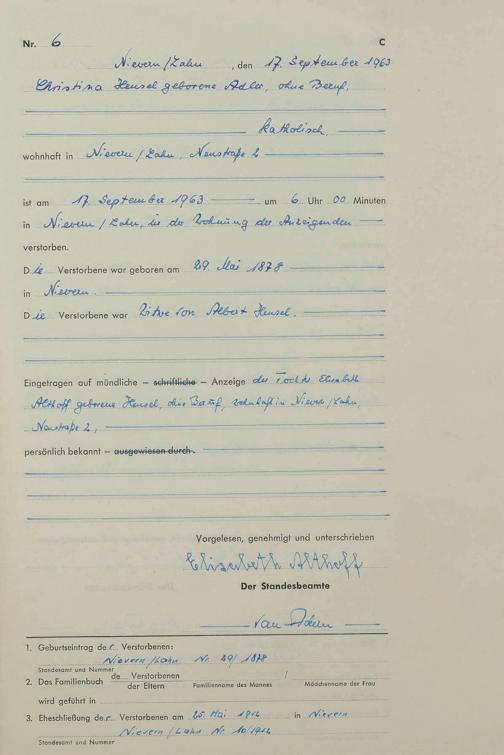 Nr. 6 C
Nievern/Lahn, den 17. September 1963
Christina Hensel geborene Adler, ohne Beruf,
katholisch,
wohnhaft in Nievern/Lahn, Neustraße 2
ist am 17. September 1963 um 6 Uhr 00 Minuten
in Nievern/Lahn, in der Wohnung der Anzeigenden
verstorben.
Die Verstorbene war geboren am 29. Mai 1878
in Nievern.
Die Verstorbene war Witwe von Albert Hensel.
Eingetragen auf mündliche – schriftliche – Anzeige der Tochter Elisabeth
Althoff geborene Hensel, ohne Beruf, wohnhaft in Nievern/Lahn,
Neustraße 2,
persönlich bekannt – ausgewiesen durch.
Vorgelesen, genehmigt und unterschrieben
Elisabeth Althoff
Der Standesbeamte
1. Geburtseintrag der Verstorbenen:
Nievern/Lahn Nr. 29/1878
Standesamt und Nummer
2. Das Familienbuch de Verstorbenen /
der Eltern Familienname des Mannes Mädchenname der Frau
wird geführt in
3. Eheschließung der Verstorbenen am 25. Mai 1912 in Nievern
Nievern/Lahn Nr. 10/1912
Standesamt und Nummer